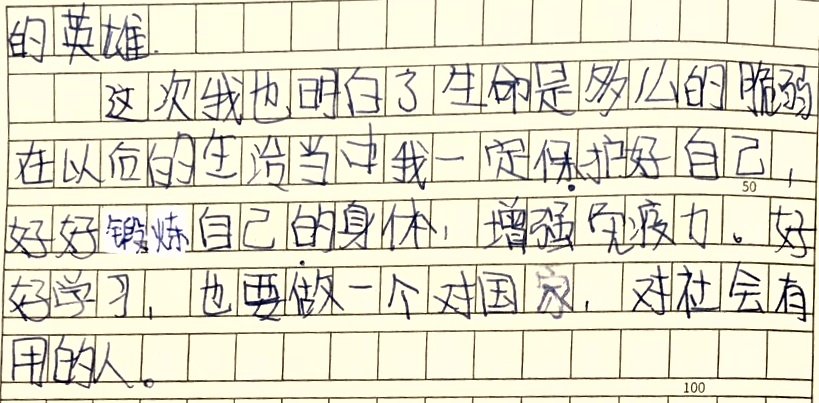 的英雄.
这次我也明白了生命是多么的脆弱
在以后的生活当中我一定保护好自己,
50
好好锻炼自己的身体,增强免疫力。好
好学习,也要做一个对国家,对社会有
用的人。
100